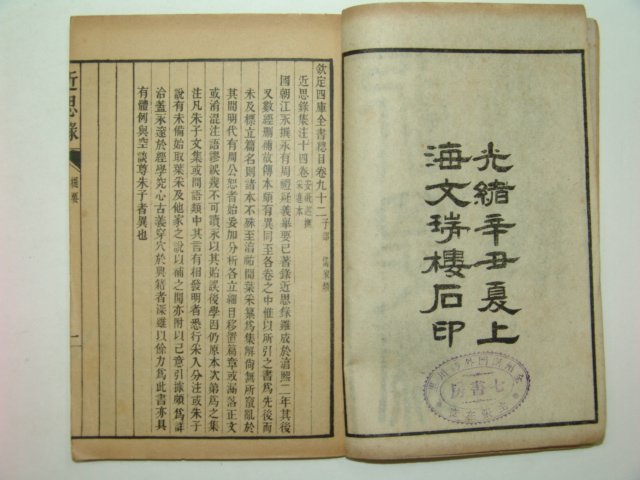 光緒辛丑夏上
海文瑞樓石印
欽定四庫全書總目卷九十二子部 儒家類
近思錄集注十四卷安徽巡撫采進本
國朝江永撰永有周禮疑義舉要已著錄近思錄雖成於淳熙二年其後
又數經刪補故傳本頗有異同至各卷之中惟以所引之書為先後而
未及標立篇名則諸本不殊至淳祐間葉采纂為集解尚無所竄亂於
其間明代有周公恕者始妄加分析各立細目移置篇章或漏落正文
或淆混注語謬誤幾不可讀永以其貽誤後學因仍原本次第為之集
注凡朱子文集或問語類中其言有相發明者悉行采入分注或朱子
說有未備始取葉采及他家之說以補之間亦附以己意引據頗為詳
洽蓋永邃於經學究心古義穿穴於典籍者深雖以餘力為此書亦具
有體例與空談尊朱子者異也
近思錄
提要
一
七書房